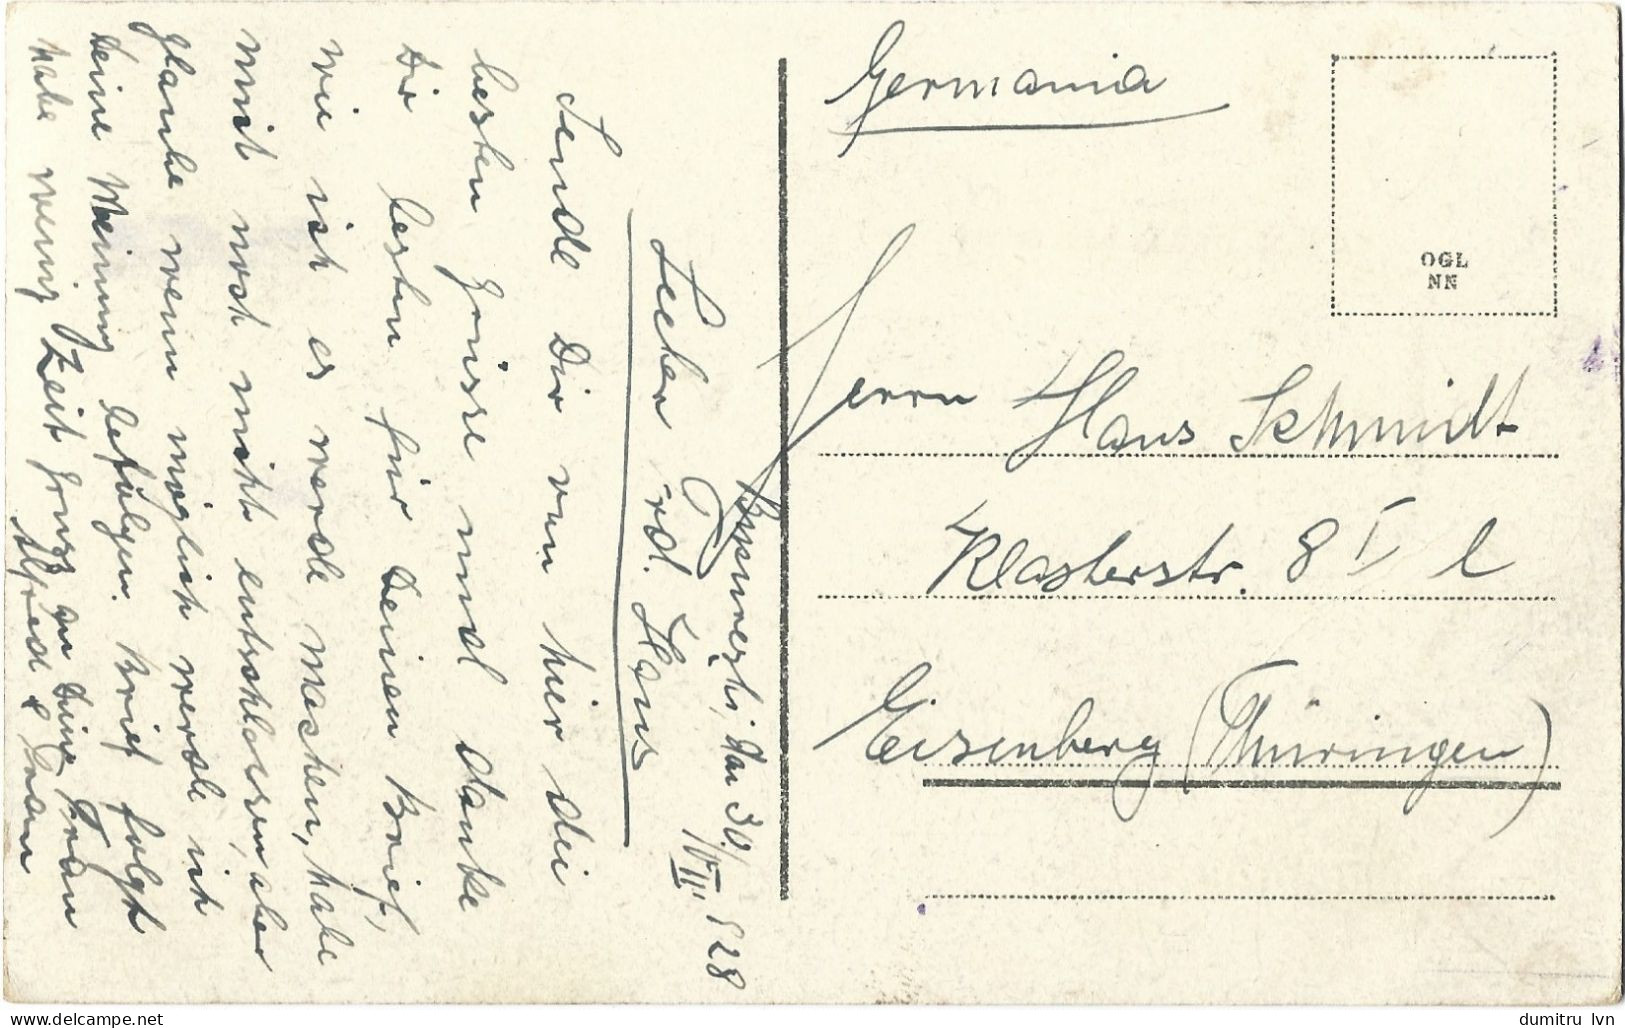 Germania
OGL
NN
Herrn Hans Schmidt
Klosterstr. 8 I l
Eisenberg (Thüringen)
București, den 30./VII. 928
Lieber Frd. Hans
Sende Dir von hier die
besten Grüsse und danke
Dir bestens für Deinen Brief,
wie ich es werde machen, habe
mich noch nicht entschlossen, aber
glaube wenn möglich werde ich
Deine Meinung befolgen. Brief folgt
habe wenig Zeit Gruss an Deine Frau
Alfred & Frau
dumitru lvn